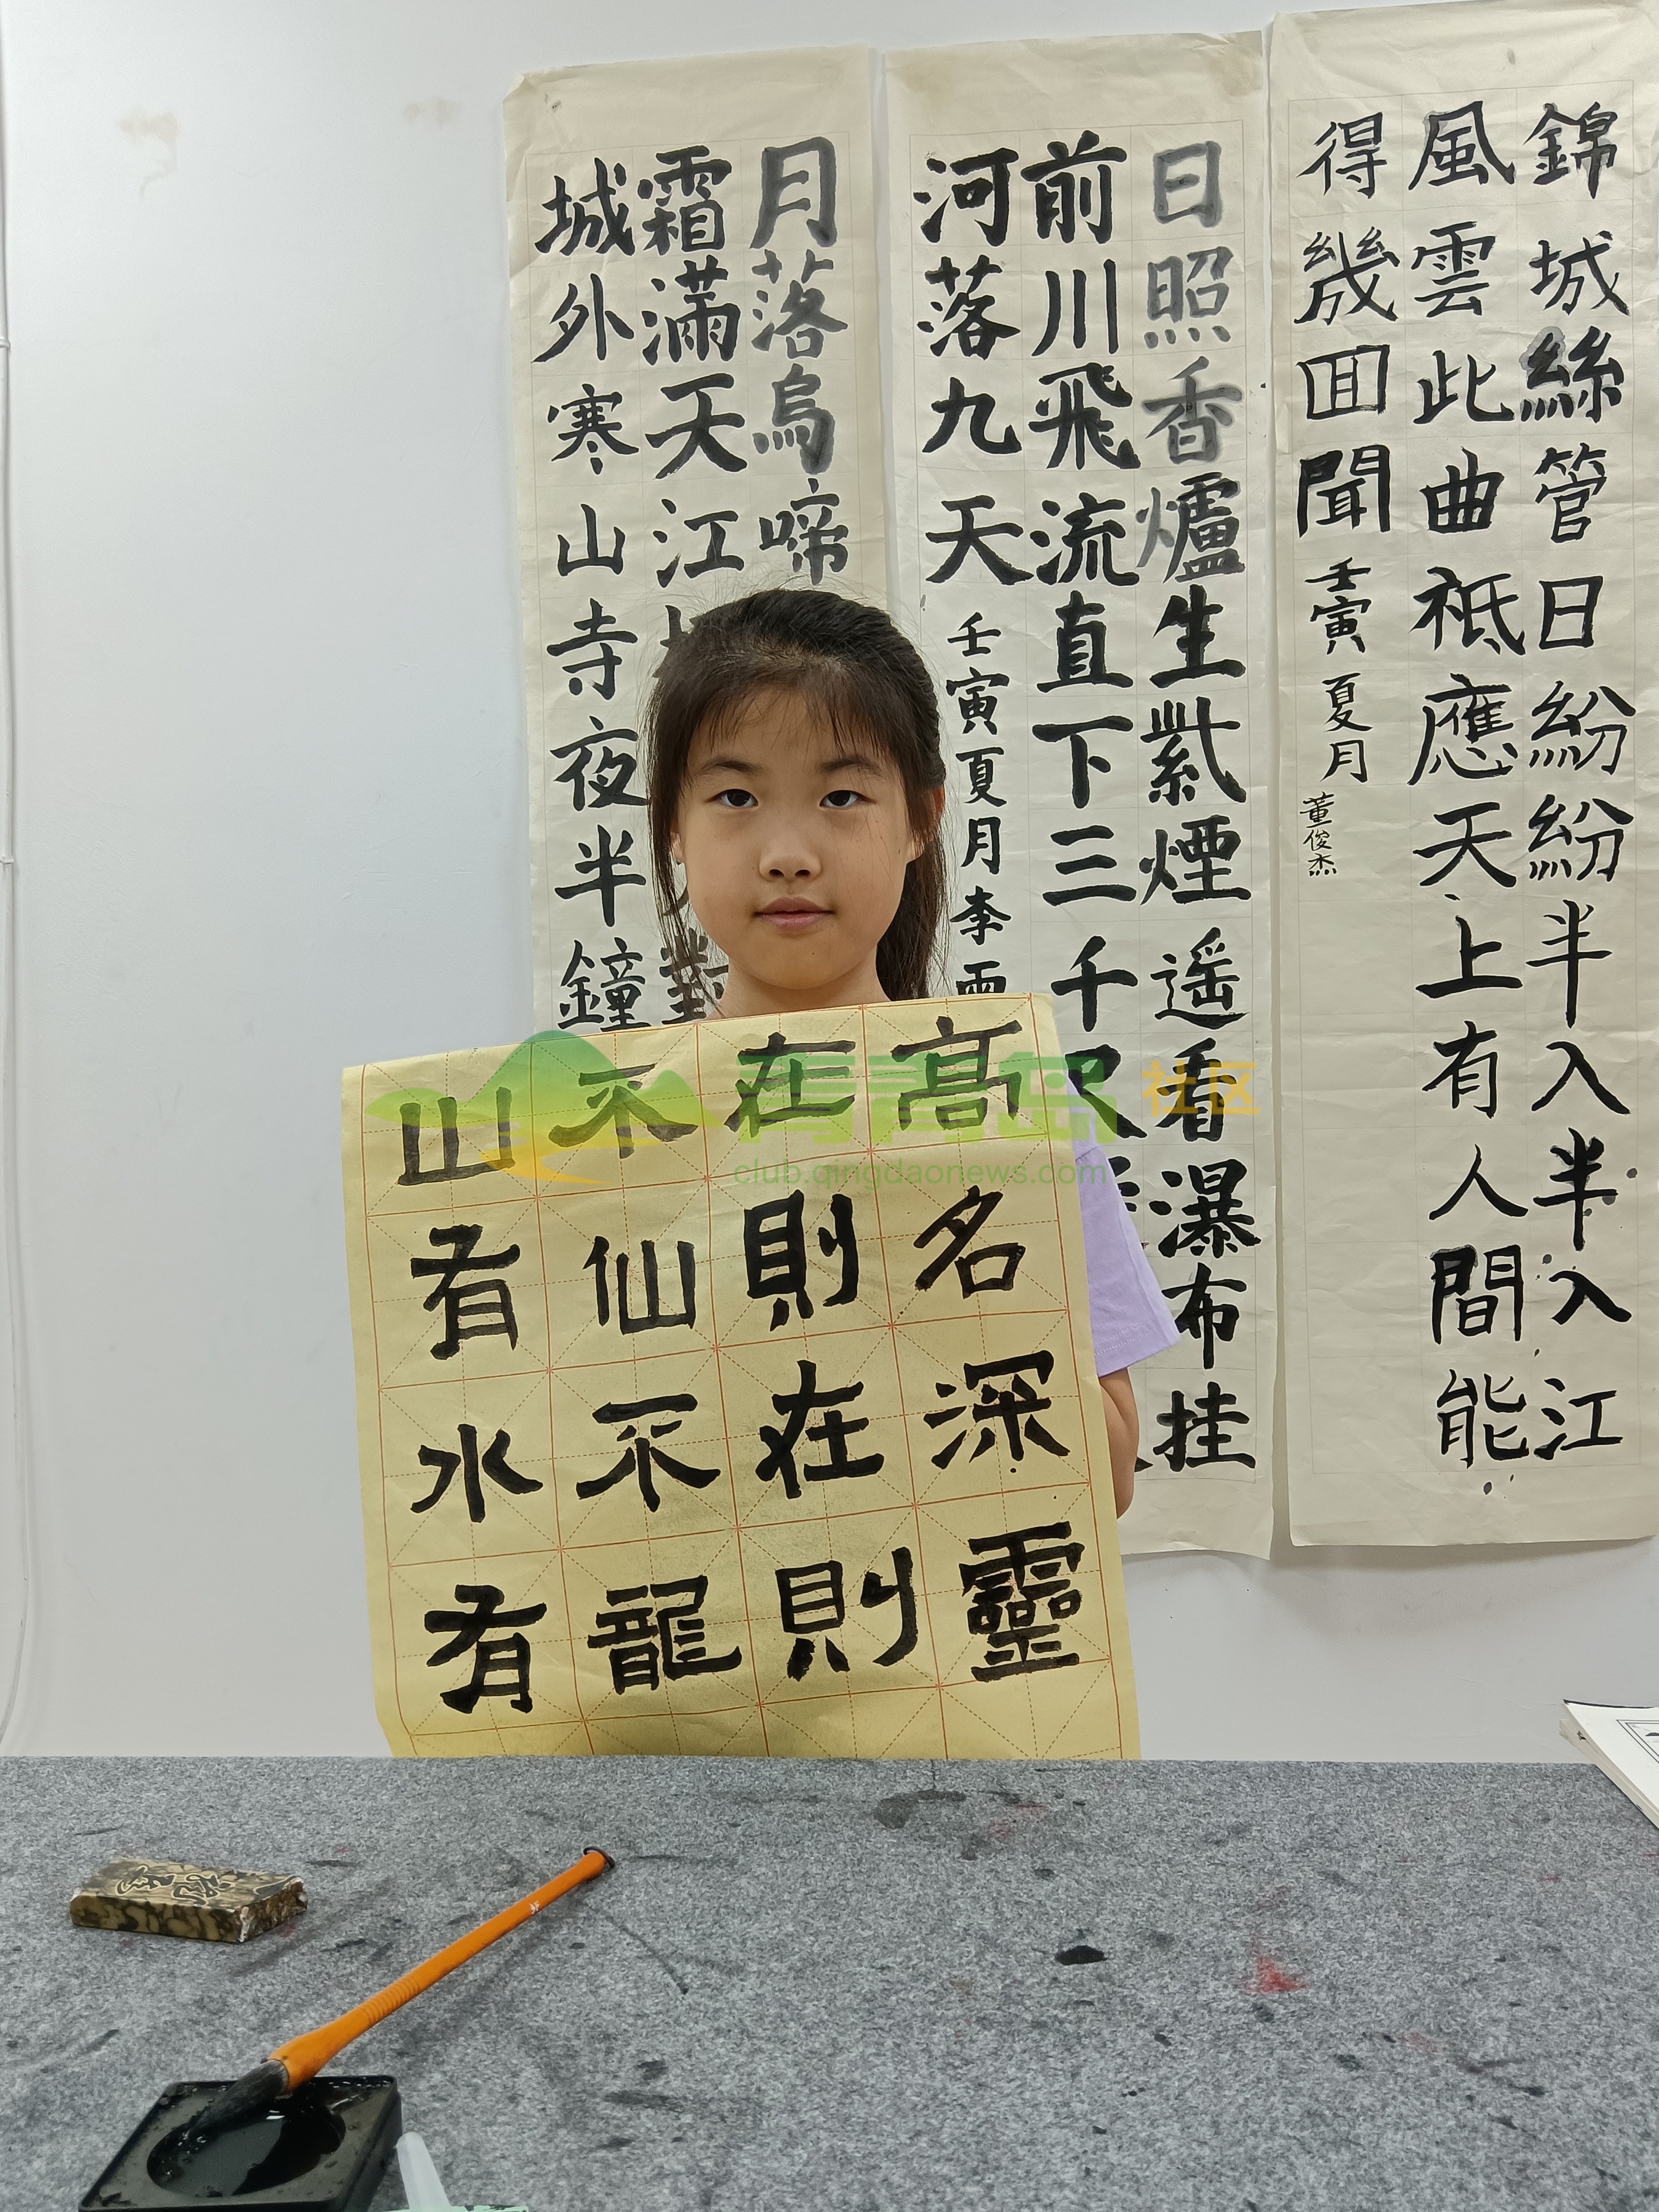 錦城絲管日紛紛半入半入江
風雲此曲祗應天上有人間能
得幾囬聞
壬寅夏月
董俊杰
日照香爐生紫煙遥看瀑布挂
前川飛流直下三千尺
河落九天
壬寅夏月李
月落烏啼
霜滿天江
對
城外寒山寺夜半鐘
山不在高
有仙則名
水不在深
有龍則靈
青青岛社区
club.qingdaonews.com